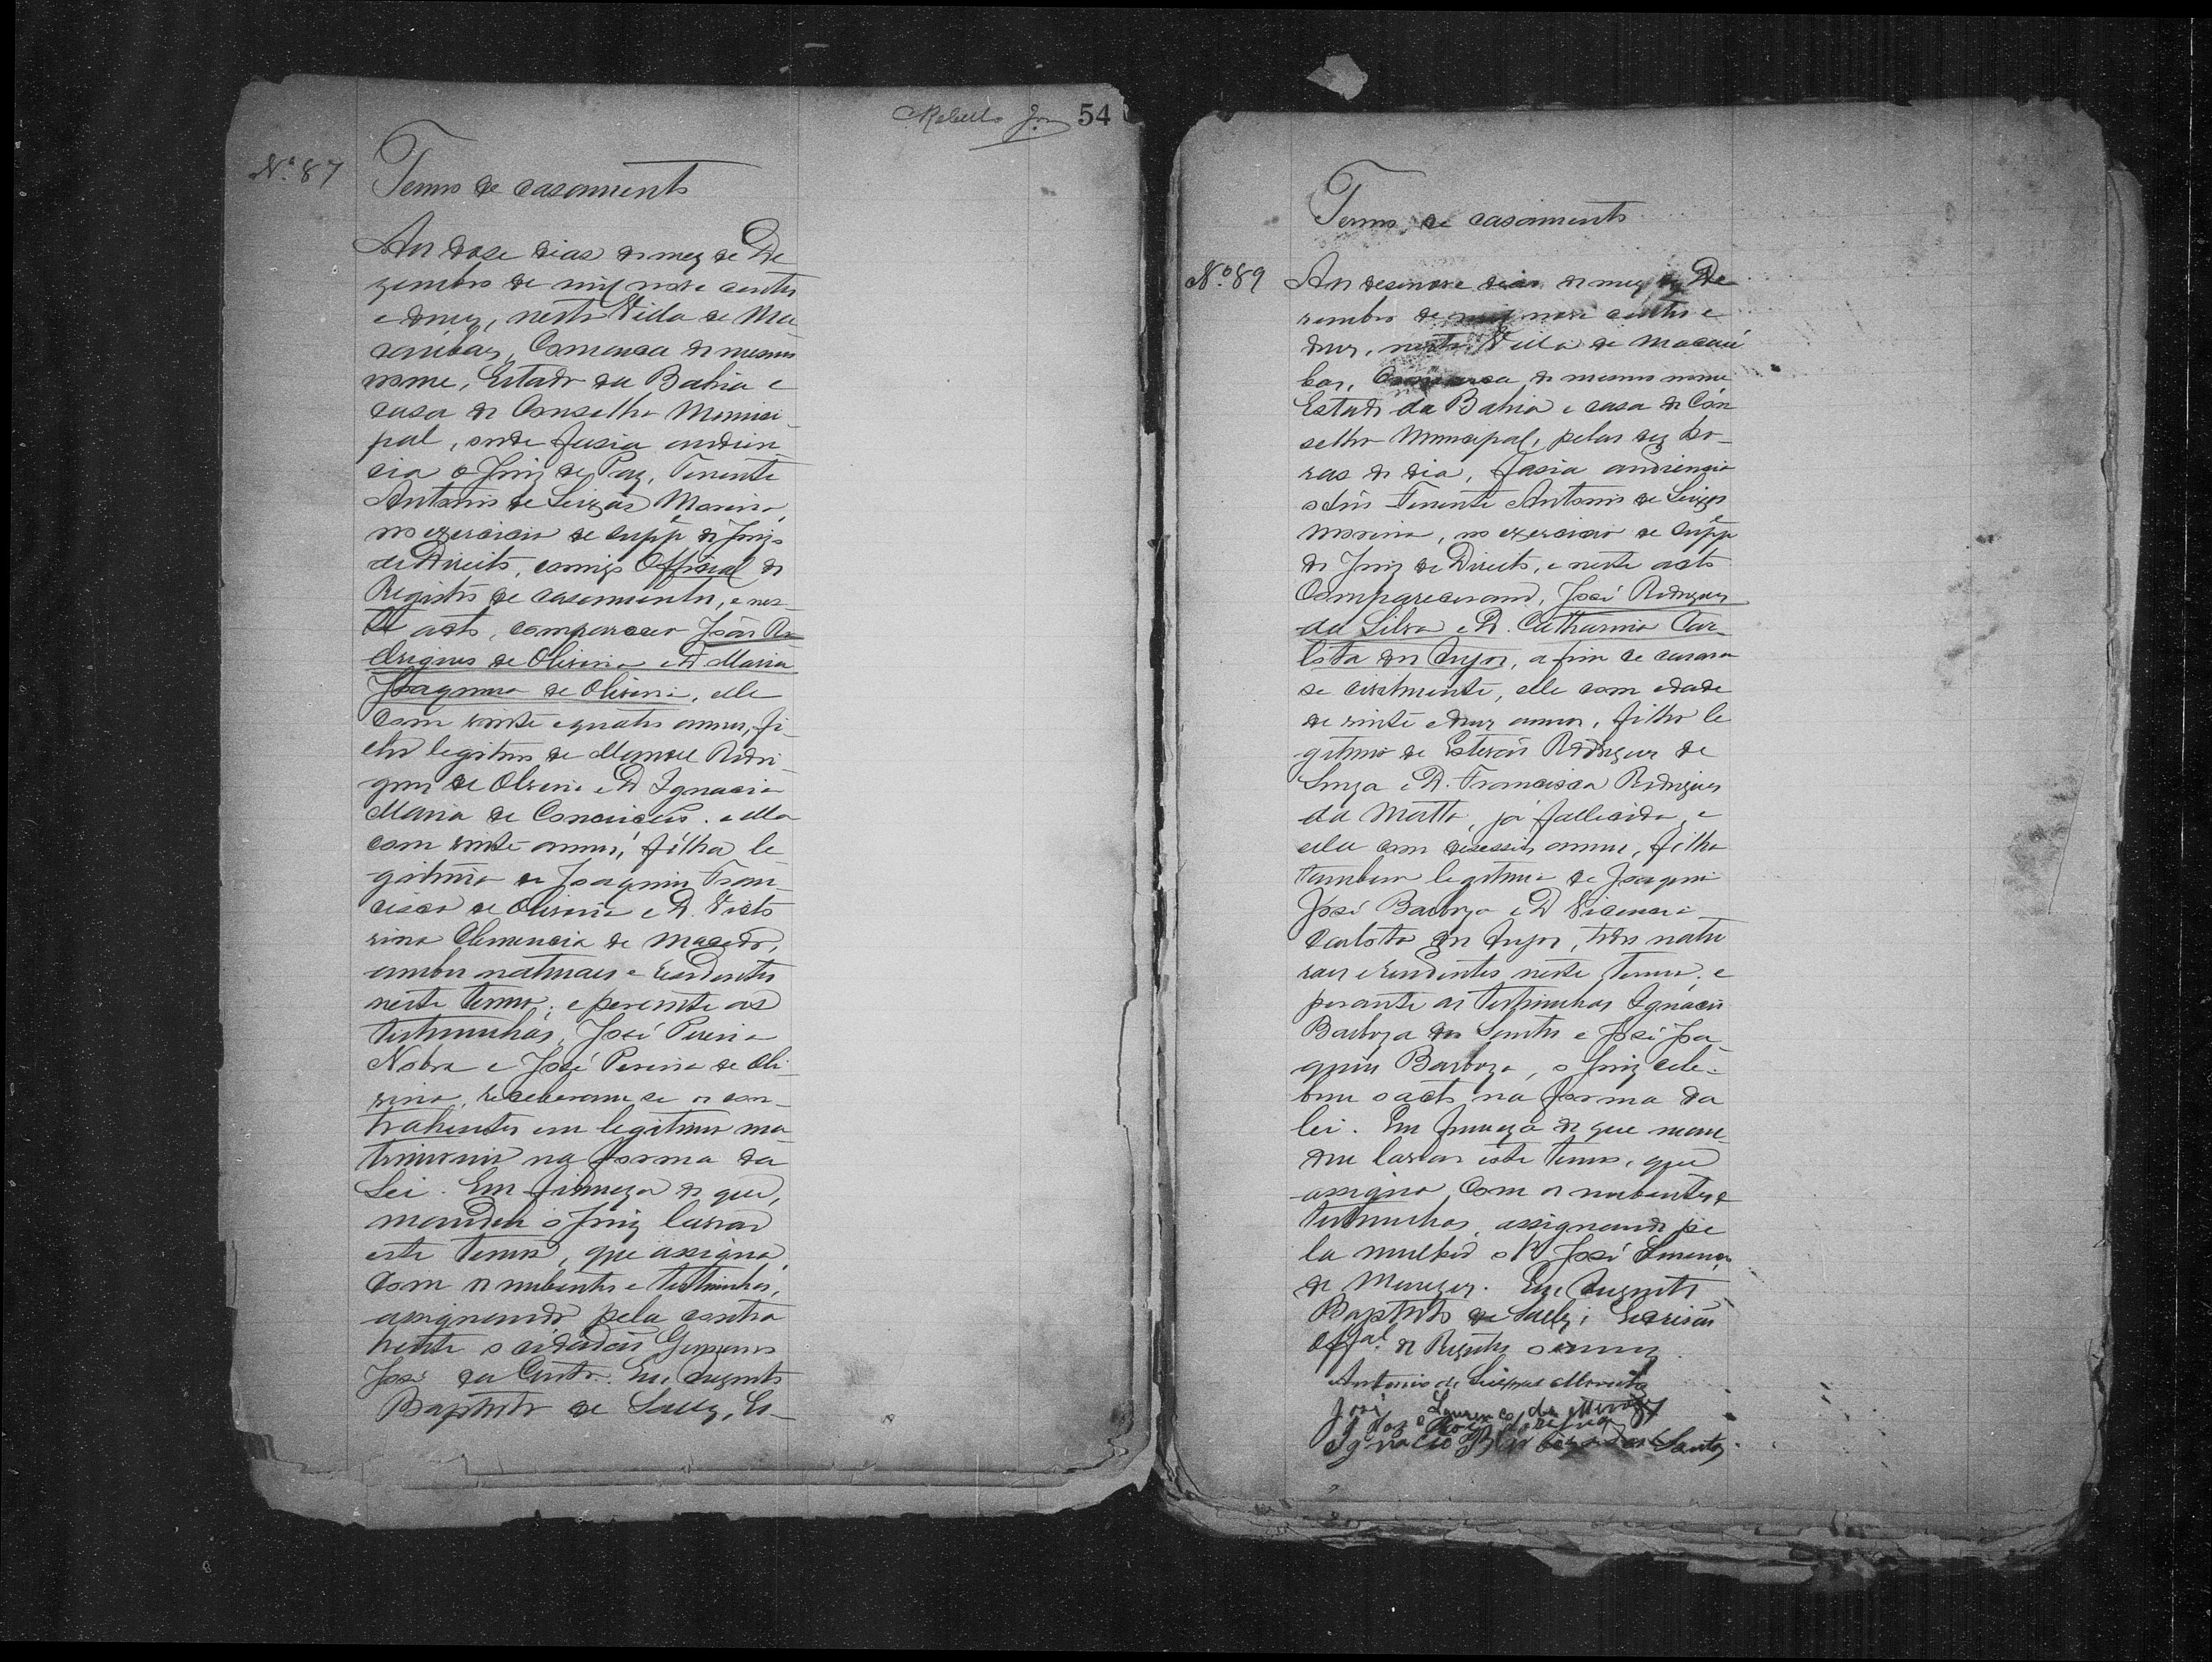 54
Nº 87
Termo de casamento
Aos dose dias do mez de De
zembro de mil nove centos
e doug, nesta Villa de Ma
cauubas, Comarca do mesmo
nome, Estado da Bahia e
casa do Conselho Munici-
pal, onde fasia audien-
cia o Juiz de Paz, Tenente
Antonio de Seixas Moreira,
no exercicio de supp.e do Juiz
de Direito, comigo Official do
Registro de casamentos, e nes-
te acto, compareceo João Ro
drigues de Oliveira e D. Maria
Joaquina de Oliveira, elle
com vinte e quatro annos, fi-
lho legitimo de Manoel Rodri-
gues de Oliveira e D. Ignacia
Maria de Conceição, e ella
com vinte annos, filha le
gitima de Joaquim Fran-
cisco de Oliveira e D. Victo
rina Clemencia de Macedo,
ambos naturaes e residentes
neste termo; e perante as
testimunhas, José Pereira
Nobra e José Pereira de Oli-
veira, receberam se os con-
trahentes em legitimo ma-
trimonio na forma da
Lei. Em firmeza do que,
mandou o Juiz lavrar
este termo, que assigna
com os nubentes e testimunhas,
assignando pela contra
hente o cidadão
José da Costa. Eu, Augusto
Baptista de Salles, Es-
Termo de casamento
Nº 89
Aos desenove dias do mez de De
zembro de mil nove centos e
doug, nesta Villa de Macaú
bas, Comarca do mesmo nome
Estado da Bahia e casa do Con
selho Municipal, pelas dez ho-
ras do dia, fasia audiencia
o Juis Tenente Antonio de Seixas
Moreira, no exercicio de supp.e
do Juiz de Direito, e neste acto
Compareceram, José Rodrigues
da Silva e D. Catharina Car-
lota dos Anjos, a fim de casarem
se civilmente, elle com edade
de vinte e doug annos, filho le
gitimo de Estevão Rodrigues de
Souza e D. Francisca Rodrigues
da Matta, já fallecida, e
ella com deseseis annos, filha
tambem legitima de Joaquim
José Barboza e D. Vicencia
Carlota dos Anjos, todos natu
raes e residentes neste termo; e
perante as testimunhas Ignacio
Barboza dos Santos e José Joa-
quim Barboza, o Juiz cele-
brou o acto na forma da
lei. Em firmeza do que man-
dou lavrar este termo, que
assigna com os nubentes e
testimunhas, assignando pe
la mulher o José Lourenço
de Menezes. Eu, Augusto
Baptista de Salles, Escrivão
Offal. do Registro o
Antonio de Seixas Moreira
José Lourenço de Menezes
Ignacio Barboza dos Santos